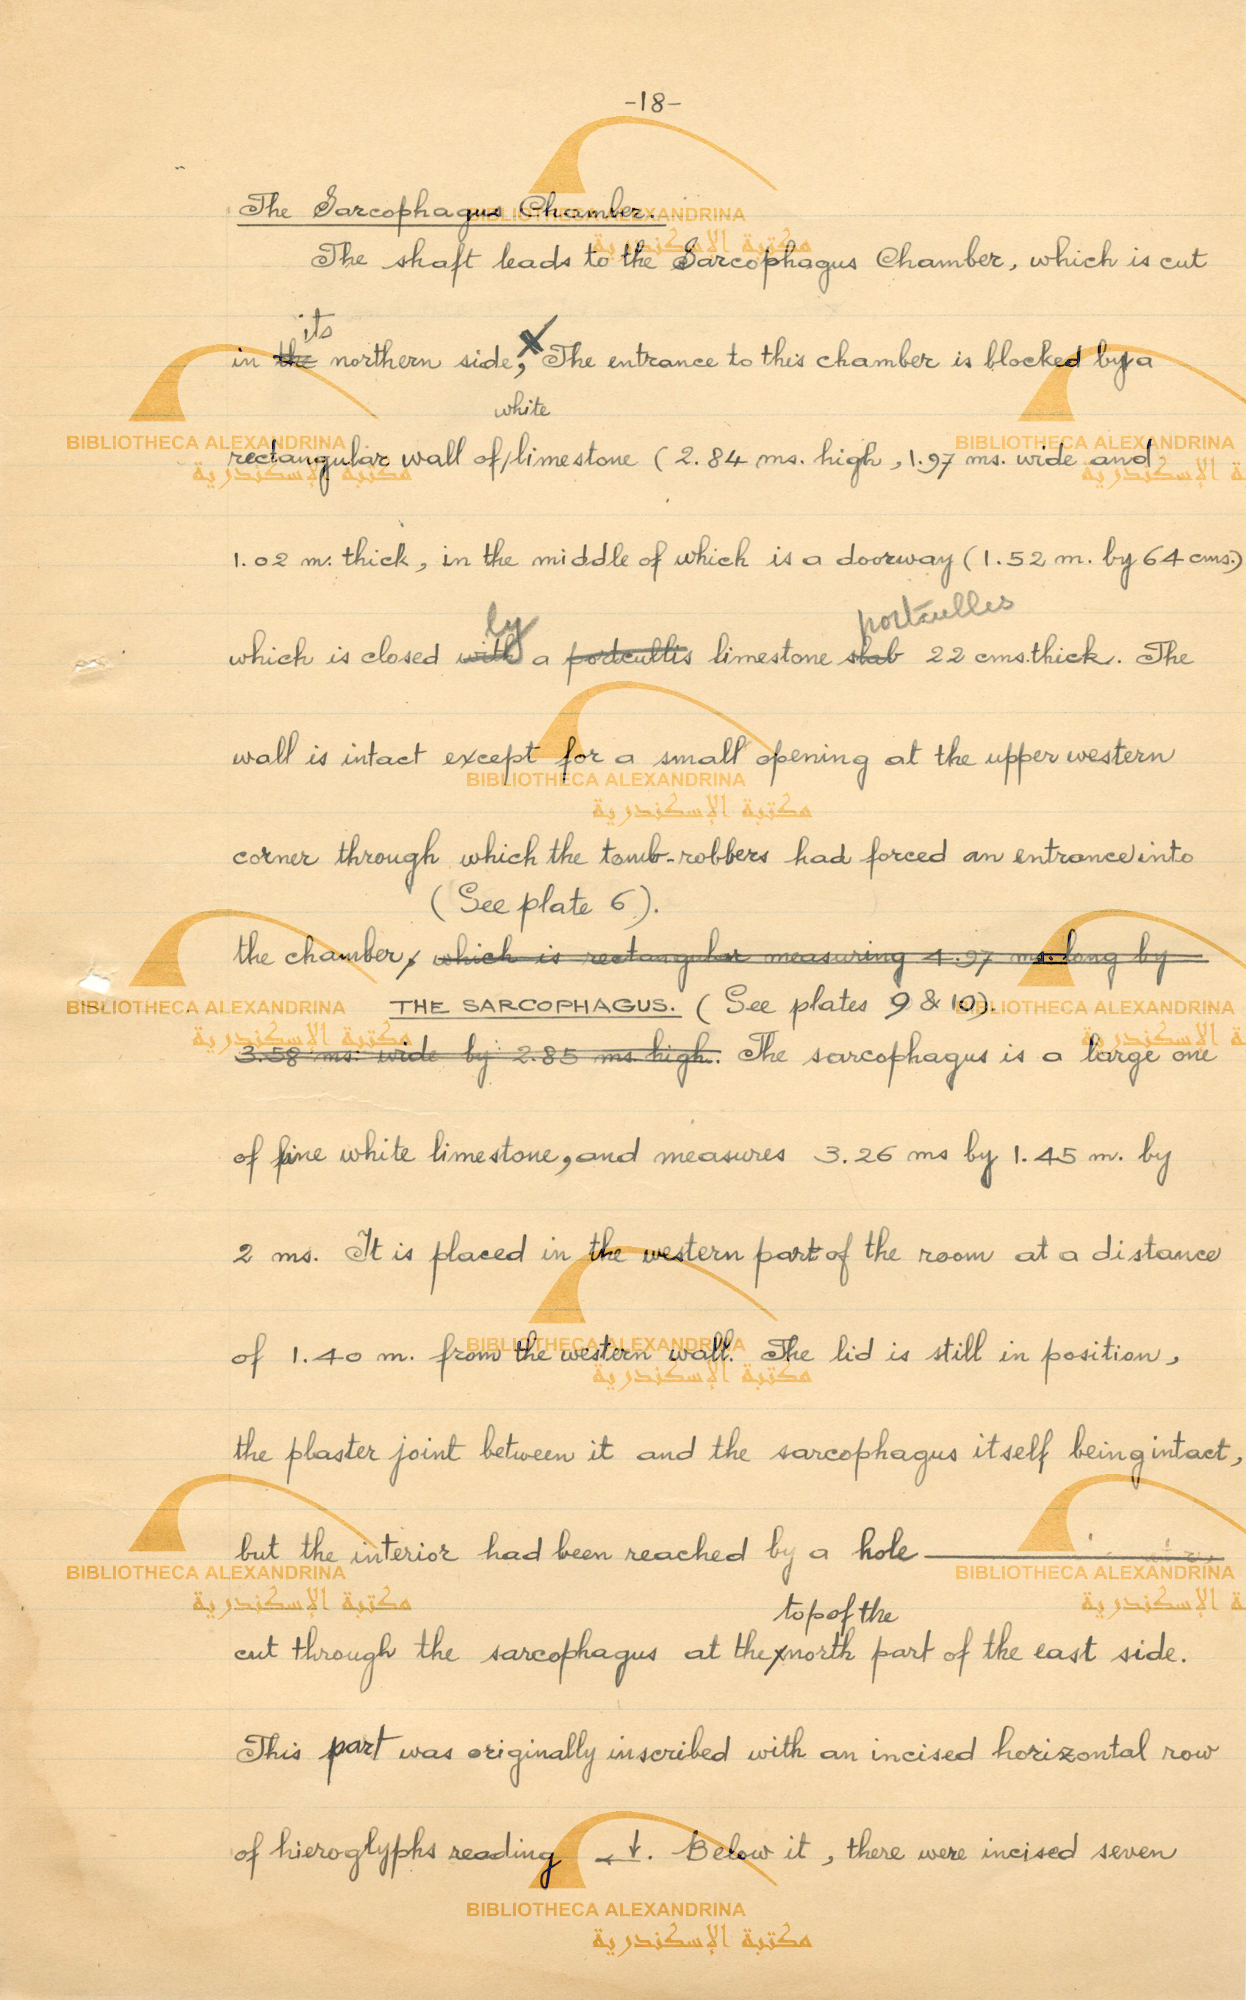 -18-
The Sarcophagus Chamber.
The shaft leads to the Sarcophagus Chamber, which is cut
its
in the northern side, X The entrance to this chamber is blocked by a
white
rectangular wall of/limestone (2.84 ms. high, 1.97 ms. wide and
1.02 m. thick, in the middle of which is a doorway (1.52 m. by 64 cms.)
by portcullis
which is closed with a portcullis limestone slab 22 cms. thick. The
wall is intact except for a small opening at the upper western
corner through which the tomb-robbers had forced an entrance into
(See plate 6).
the chamber, which is rectangular measuring 4.97 ms. long by
THE SARCOPHAGUS. (See plates 9 & 10).
3.58 ms. wide by 2.85 ms. high. The sarcophagus is a large one
of fine white limestone, and measures 3.26 ms by 1.45 m. by
2 ms. It is placed in the western part of the room at a distance
of 1.40 m. from the western wall. The lid is still in position,
the plaster joint between it and the sarcophagus itself being intact,
but the interior had been reached by a hole
top of the
cut through the sarcophagus at the north part of the east side.
This part was originally inscribed with an incised horizontal row
of hieroglyphs reading ←↓. Below it, there were incised seven
BIBLIOTHECA ALEXANDRINA
مكتبة الإسكندرية